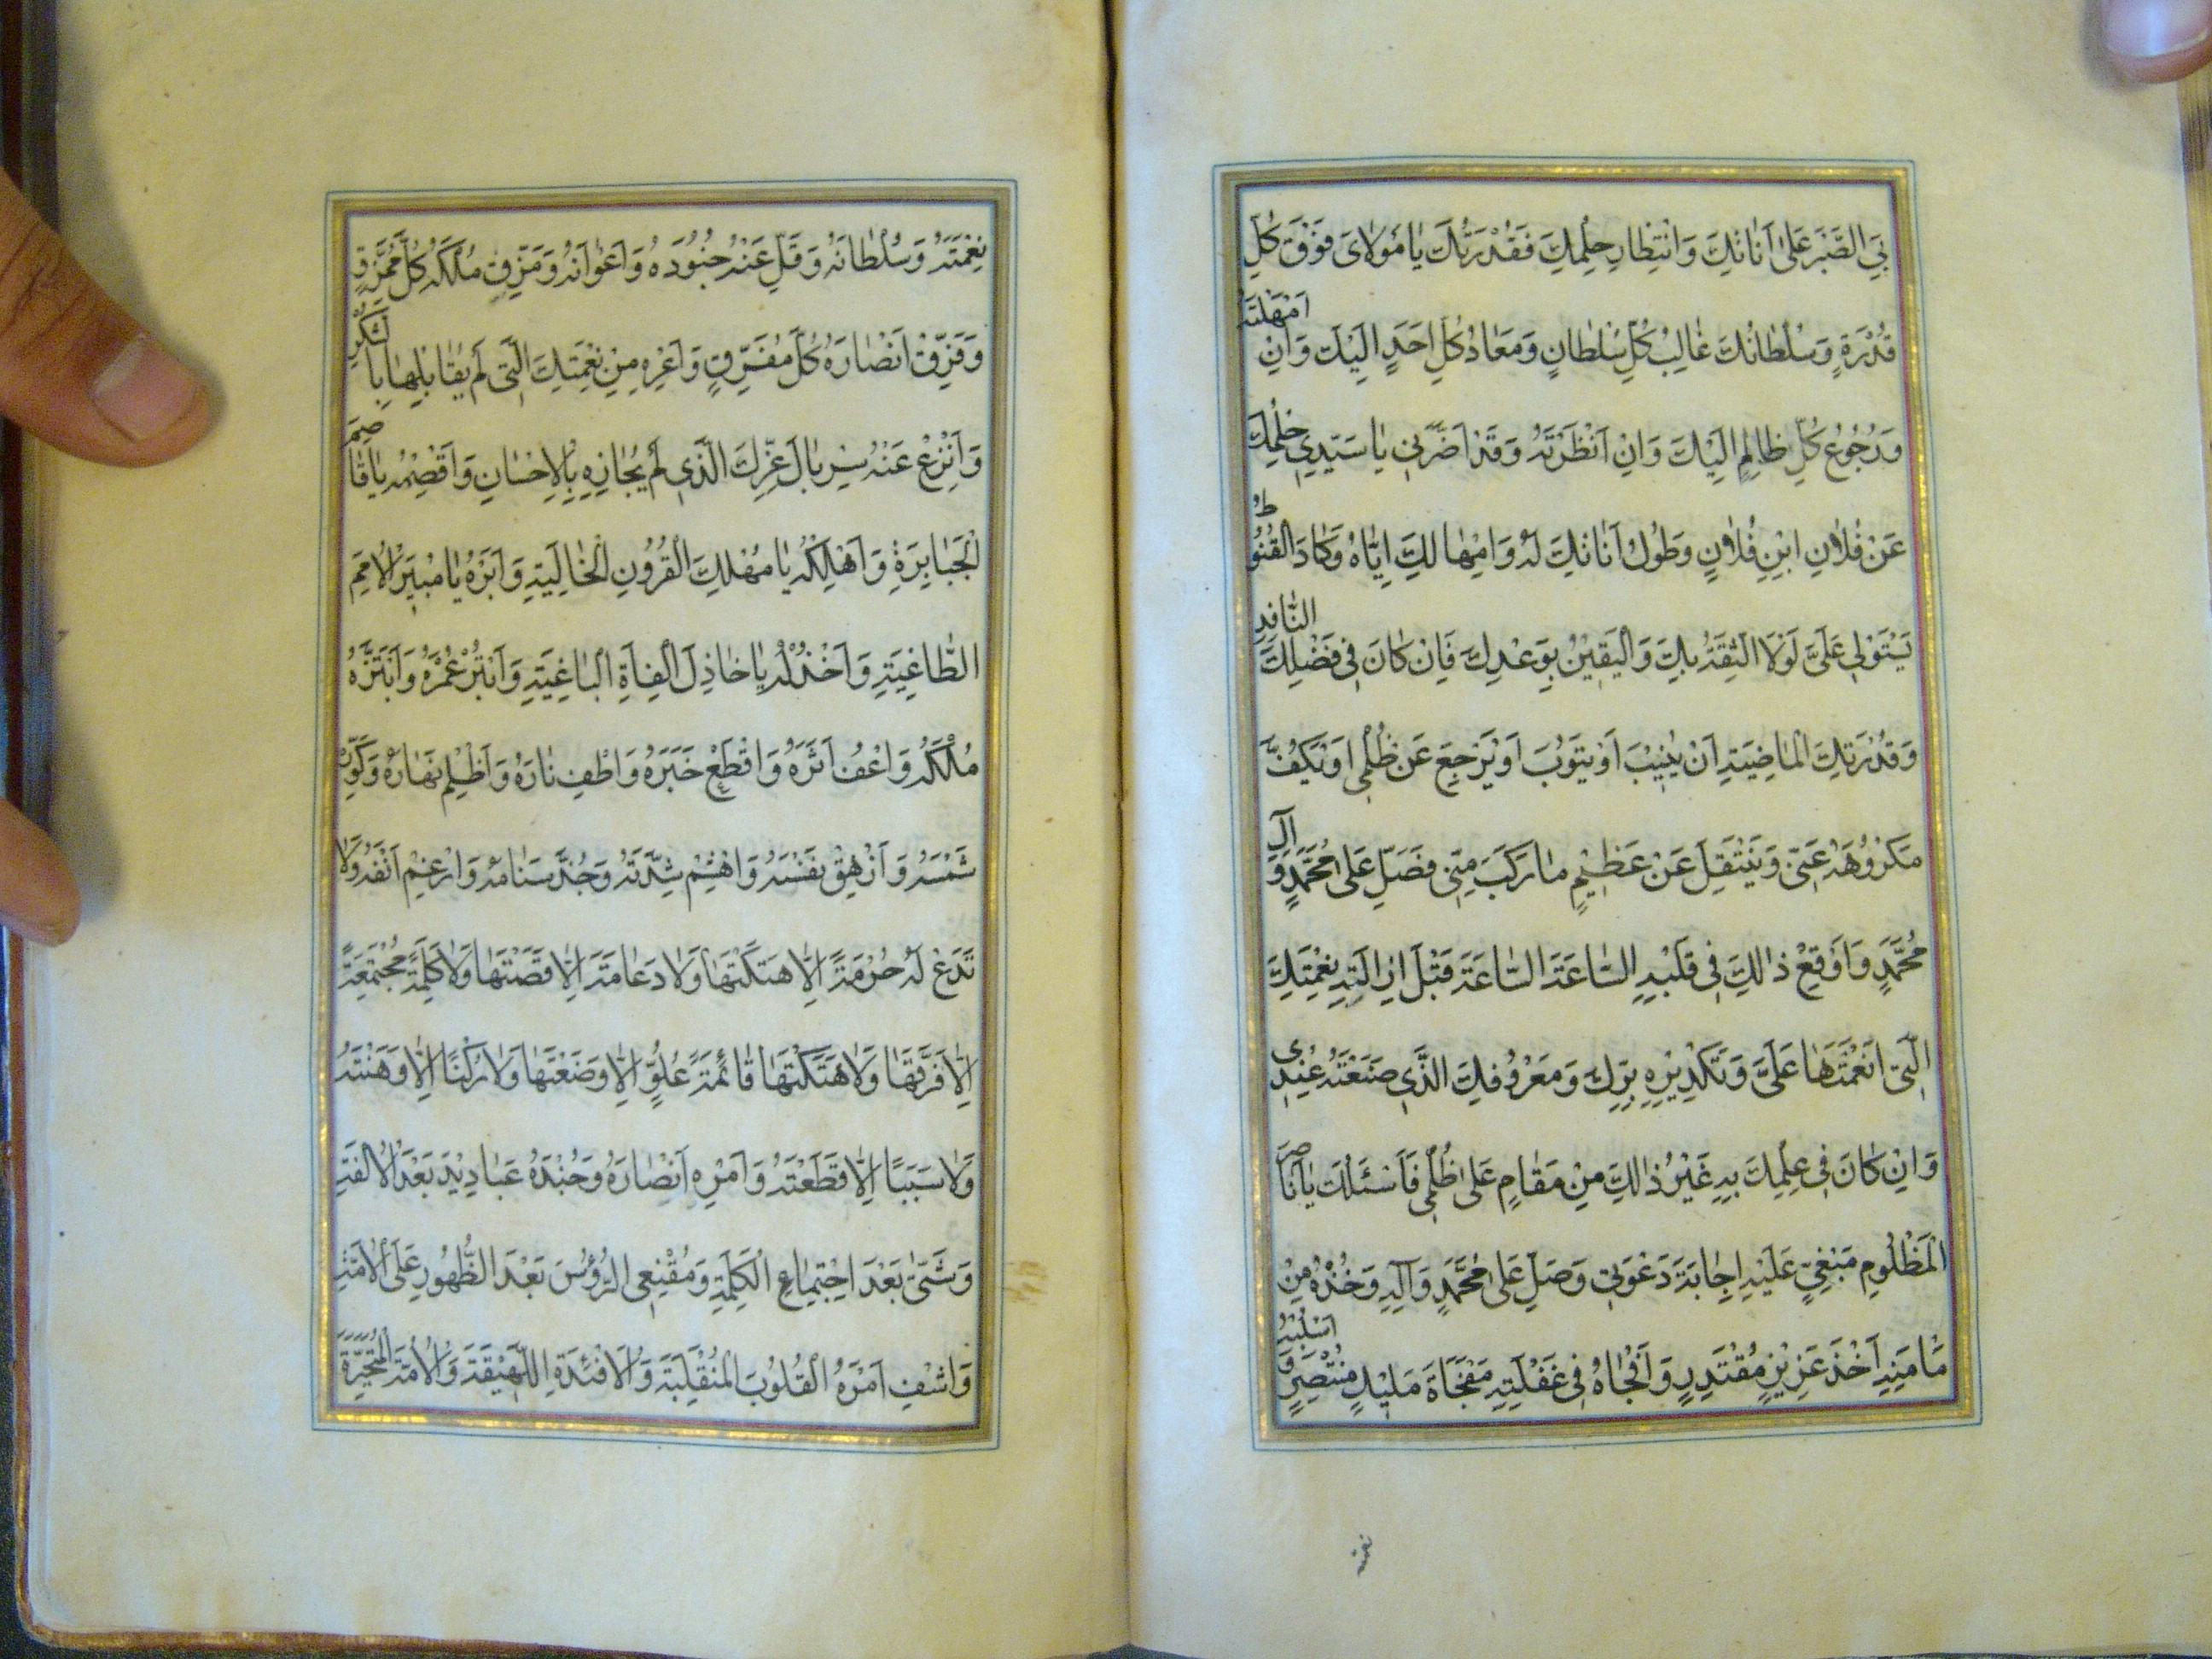 بِيَ الصَّبْرَ عَلىٰ اَنٰاتِكَ وَ انْتِظٰارِ حِلْمِكَ فَقُدْرَتُكَ يٰا مَوْلاٰىَ فَوْقَ كُلِّ
قُدْرَةٍ وَ سُلْطٰانُكَ غٰالِبُ كُلِّ سُلْطٰانٍ وَ مَعٰادُ كُلِّ اَحَدٍ اِلَيْكَ وَ اِنْ اَمْهَلْتَهُ
وَ رُجُوعُ كُلِّ ظٰالِمٍ اِلَيْكَ وَ اِنْ اَنْظَرْتَهُ وَ قَدْ اَضَرَّنِي يٰا سَيِّدِي حِلْمُكَ
عَنْ فُلاٰنِ ابْنِ فُلاٰنٍ وَ طُولُ اَنٰاتِكَ لَهُ وَ اِمْهٰالِكَ اِيّٰاهُ وَ كٰادَ الْقُنُوطُ
يَسْتَوْلِي عَلَيَّ لَوْلاَ الثِّقَةُ بِكَ وَ الْيَقِيْنُ بِوَعْدِكَ فَاِنْ كٰانَ فِي فَضْلِكَ النّٰافِدِ
وَ قُدْرَتِكَ الْمٰاضِيَةِ اَنْ يُنِيْبَ اَوْ يَتُوْبَ اَوْ يَرْجِعَ عَنْ ظُلْمِي اَوْ يَكُفَّ
مَكْرُوْهَهُ عَنِّي وَ يَنْتَقِلَ عَنْ عَظِيْمٍ مٰا رَكِبَ مِنِّي فَصَلِّ عَلىٰ مُحَمَّدٍ وَ آلِ
مُحَمَّدٍ وَ اَوْقِعْ ذٰالِكَ فِي قَلْبِهِ السّٰاعَةَ السّٰاعَةَ قَبْلَ اِزٰالَتِهِ نِعْمَتَكَ
الَّتِي اَنْعَمْتَهٰا عَلَيَّ وَ تَكْدِيْرِهِ بِرِّكَ وَ مَعْرُوْفِكَ الَّذِي صَنَعْتَهُ عِنْدِي
وَ اِنْ كٰانَ فِي عِلْمِكَ بِهِ غَيْرُ ذٰالِكَ مِنْ مَقٰامٍ عَلىٰ ظُلْمِي فَاَسْئَلُكَ يٰا نٰاصِرَ
الْمَظْلُومِ مَبْغِيٍّ عَلَيْهِ اِجٰابَةَ دَعْوَتِي وَ صَلِّ عَلىٰ مُحَمَّدٍ وَ آلِهِ وَ خُذْهُ مِنْ
مَأمَنِهِ اَخْذَ عَزِيْزٍ مُقْتَدِرٍ وَ افْجَأهُ فِي غَفْلَتِهِ مَفْجَاَةَ مَلِيْكٍ مُنْتَصِرٍ وَ اسْلُبْهُ
نعمته
نِعْمَتَهُ وَ سُلْطٰانَهُ وَ فَلِّ عَنْهُ جُنُوْدَهُ وَ اَعْوٰانَهُ وَ مَزِّقْ مُلْكَهُ كُلَّ مُمَزَّقٍ
وَ فَرِّقْ اَنْصٰارَهُ كُلَّ مُفَرَّقٍ وَ اَعْرِهِ مِنْ نِعْمَتِكَ الَّتِي لَمْ يُقٰابِلْهٰا بِالشُّكْرِ
وَ انْزِعْ عَنْهُ سِرْبٰالَ عِزِّكَ الَّذِي لَمْ يُجٰازِهِ بِالْاِحْسٰانِ وَ اقْصِمْهُ يٰا قٰاصِمَ
الْجَبٰابِرَةِ وَ اَهْلِكْهُ يٰا مُهْلِكَ الْقُرُوْنِ الْخٰالِيَةِ وَ اَبِرْهُ يٰا مُبِيْرَ الْاُمَمِ
الطّٰاغِيَةِ وَ اخْذُلْهُ يٰا خٰاذِلَ الْفِأَةِ الْبٰاغِيَةِ وَ ابْتُرْ عُمْرَهُ وَ ابْتَزَّهُ
مُلْكَهُ وَ اعْفُ اَثَرَهُ وَ اقْطَعْ خَبَرَهُ وَ اطْفِ نٰارَهُ وَ اَظْلِمْ نَهٰارَهُ وَ كَوِّرْ
شَمْسَهُ وَ اَزْهِقْ نَفْسَهُ وَ اهْشِمْ شِدَّتَهُ وَ جُذَّ سَنٰامَهُ وَ ارْغِمْ اَنْفَهُ وَ لاٰ
تَدَعْ لَهُ حُرْمَةً اِلاّٰ هَتَكْتَهٰا وَ لاٰ دَعٰامَةً اِلاّٰ قَصَمْتَهٰا وَ لاٰ كَلِمَةً مُجْتَمِعَةً
اِلاّٰ فَرَّقْتَهٰا وَ لاٰ هَتَكْتَهٰا قٰائِمَةَ عُلُوٍّ اِلاّٰ وَضَعْتَهٰا وَ لاٰ رُكْنًا اِلاّٰ وَهَنْتَهُ
وَ لاٰ سَبَبًا اِلاّٰ قَطَعْتَهُ وَ اَمْرِهِ اَنْصٰارَهُ وَ جُنْدَهُ عَبٰادِيْدَ بَعْدَ الْاُلْفَةِ
وَ شَتّٰى بَعْدَ اجْتِمٰاعِ الْكَلِمَةِ وَ مُقْنِعِي الرُّؤُسَ بَعْدَ الظُّهُوْرِ عَلَى الْاُمَّةِ
وَ اشْفِ اَمْرَهُ الْقُلُوْبَ الْمُنْقَلِبَةَ وَ الْاَفْئِدَةَ اللَّهِيْفَةَ وَ الْاُمَّةَ الْمُتَحَيِّرَةَ